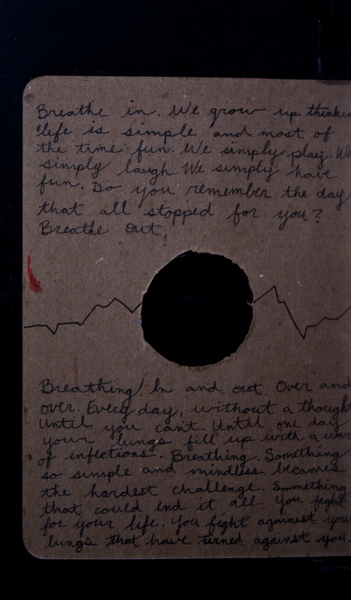 Breathe in. We grow up thinking
life is simple and most of
the time fun. We simply play. We
simply laugh We simply have
fun. Do you remember the day
that all stopped for you?
Breathe out.
Breathing! In and out. Over and
over. Every day, without a thought
Until you can't. Until one day
your lungs fill up with a
of infections. Breathing. Something
so simple and mindless becomes
the hardest challenge. Something
that could end it all. You fight
for your life. You fight againest your
lungs that have turned against you.